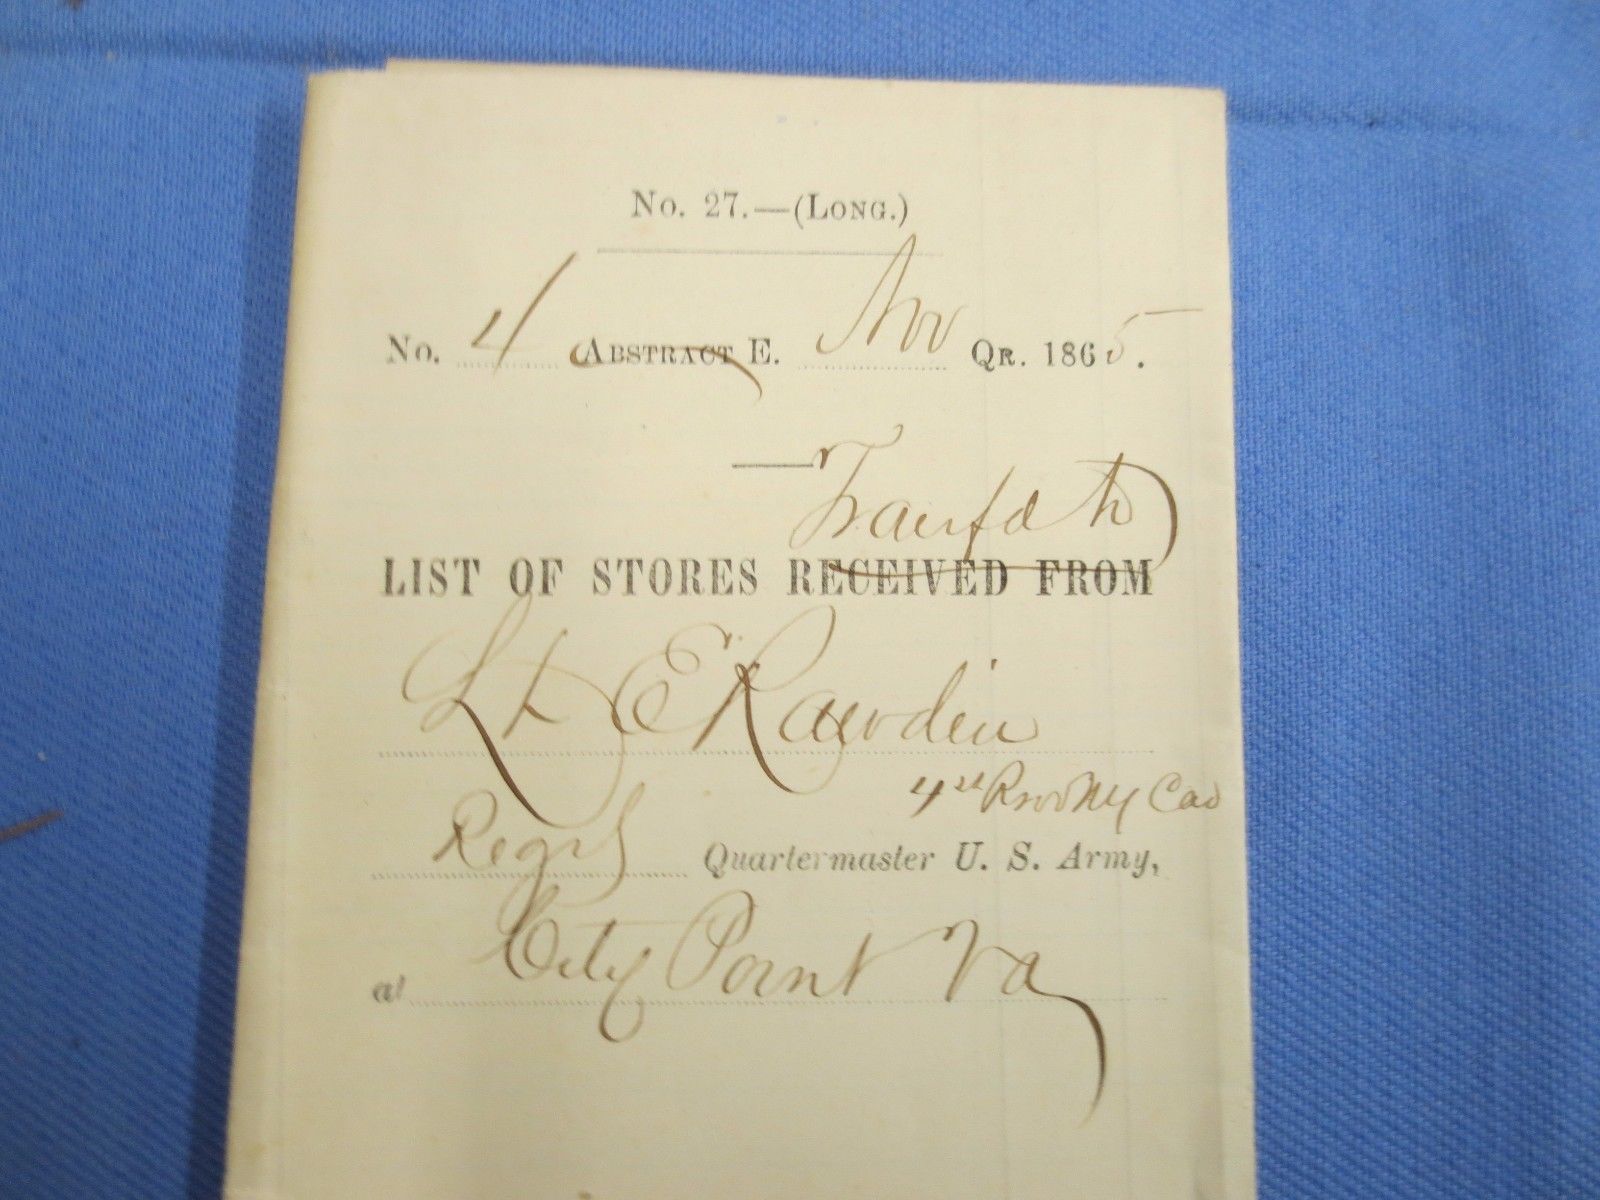 No. 27.—(LONG.)
No. 4 ABSTRACT E. Nov QR. 1865.
Transfd to
LIST OF STORES RECEIVED FROM
Lt E Rawdin
4 Prov NY Cav
Regtl Quartermaster U. S. Army,
at City Point Va